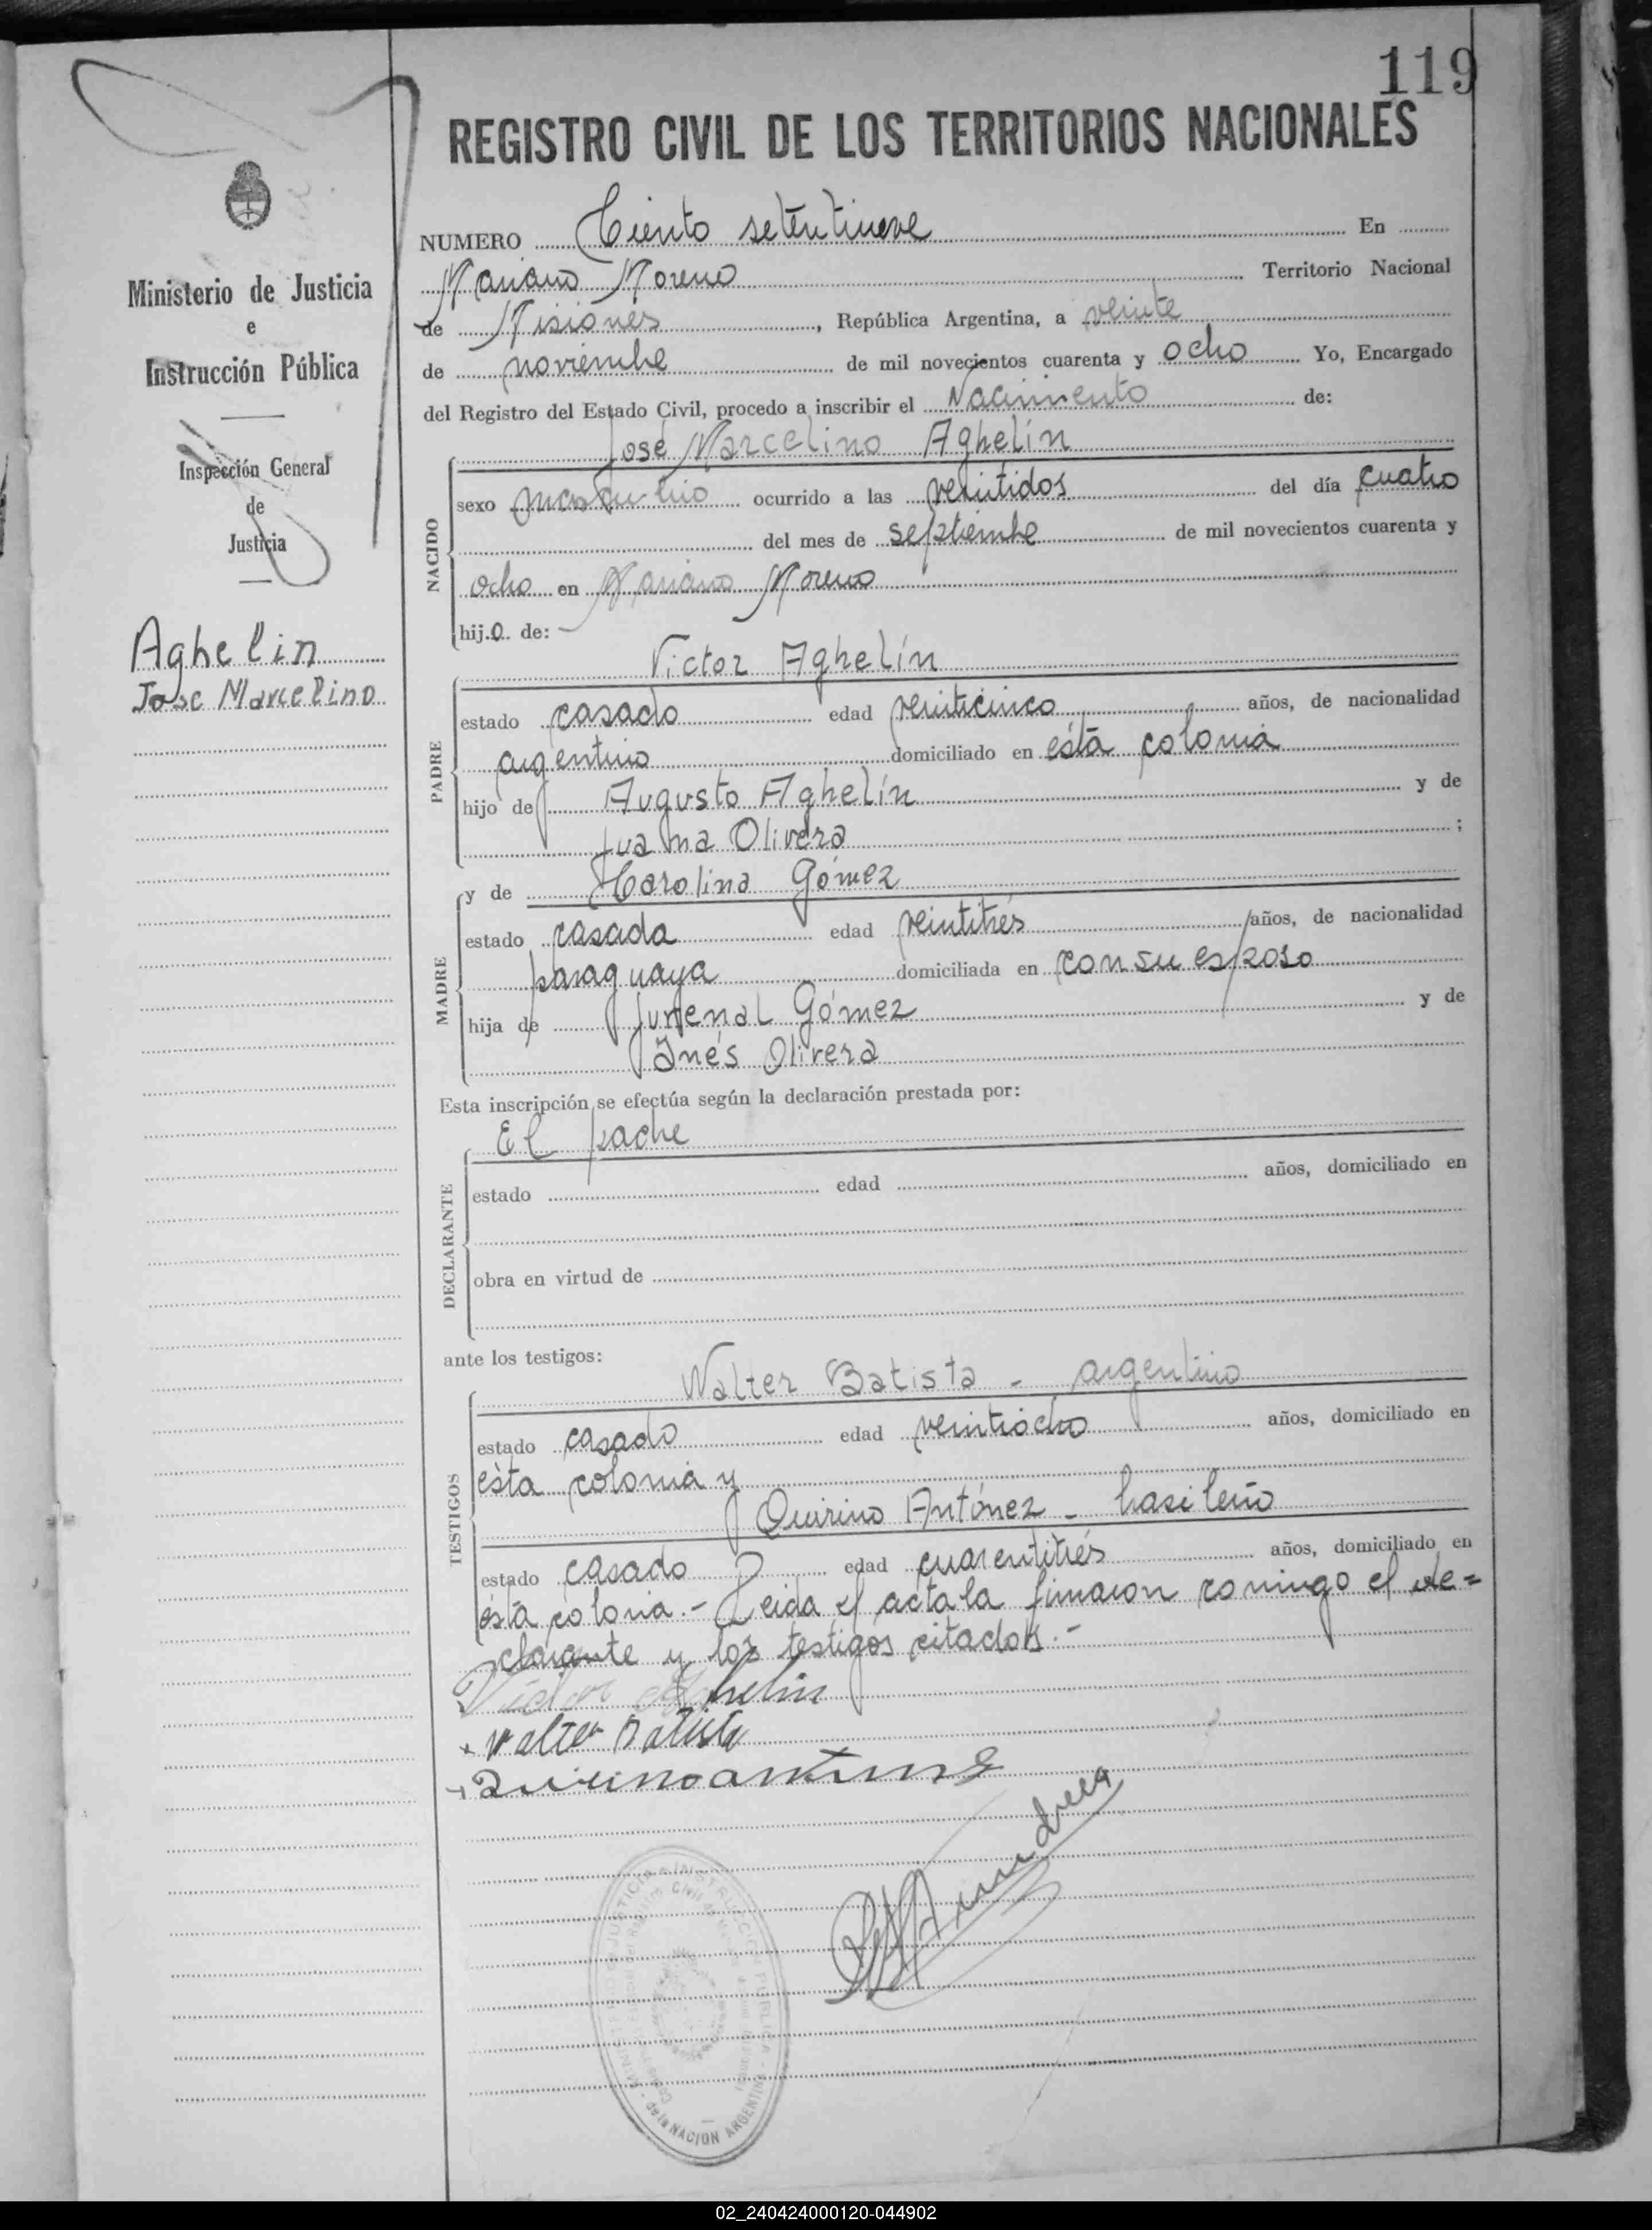 119
REGISTRO CIVIL DE LOS TERRITORIOS NACIONALES
Ministerio de Justicia
e
Instrucción Pública
Inspección General
de
Justicia
Aghelin
Jose Marcelino
NUMERO Ciento setentinueve En
Mariano Moreno Territorio Nacional
de Misiones, República Argentina, a veinte
de noviembre de mil novecientos cuarenta y ocho Yo, Encargado
del Registro del Estado Civil, procedo a inscribir el Nacimiento de:
José Marcelino Aghelín
NACIDO
sexo masculino ocurrido a las veintidos del día cuatro
del mes de septiembre de mil novecientos cuarenta y
ocho en Mariano Moreno
hijo de:
Victor Aghelín
PADRE
estado casado edad veinticinco años, de nacionalidad
argentino domiciliado en ésta colonia
hijo de Augusto Aghelín y de
Juana Olivera ;
y de Carolina Gómez
MADRE
estado casada edad veintitrés años, de nacionalidad
paraguaya domiciliada en con su esposo
hija de Juvenal Gómez y de
Inés Olivera
Esta inscripción se efectúa según la declaración prestada por:
El padre
DECLARANTE
estado edad años, domiciliado en
obra en virtud de
ante los testigos:
Walter Batista - argentino
TESTIGOS
estado casado edad veintiocho años, domiciliado en
ésta colonia y
Quirino Antónez - brasileño
estado casado edad cuarentitrés años, domiciliado en
ésta colonia.- Leida el acta la firmaron conmigo el de=
clarante y los testigos citados.-
Victor Aghelin
Walter Batista
Quirino antune
MINISTERIO DE JUSTICIA e INSTRUCCIÓN PUBLICA
de la NACION ARGENTINA
02_240424000120-044902